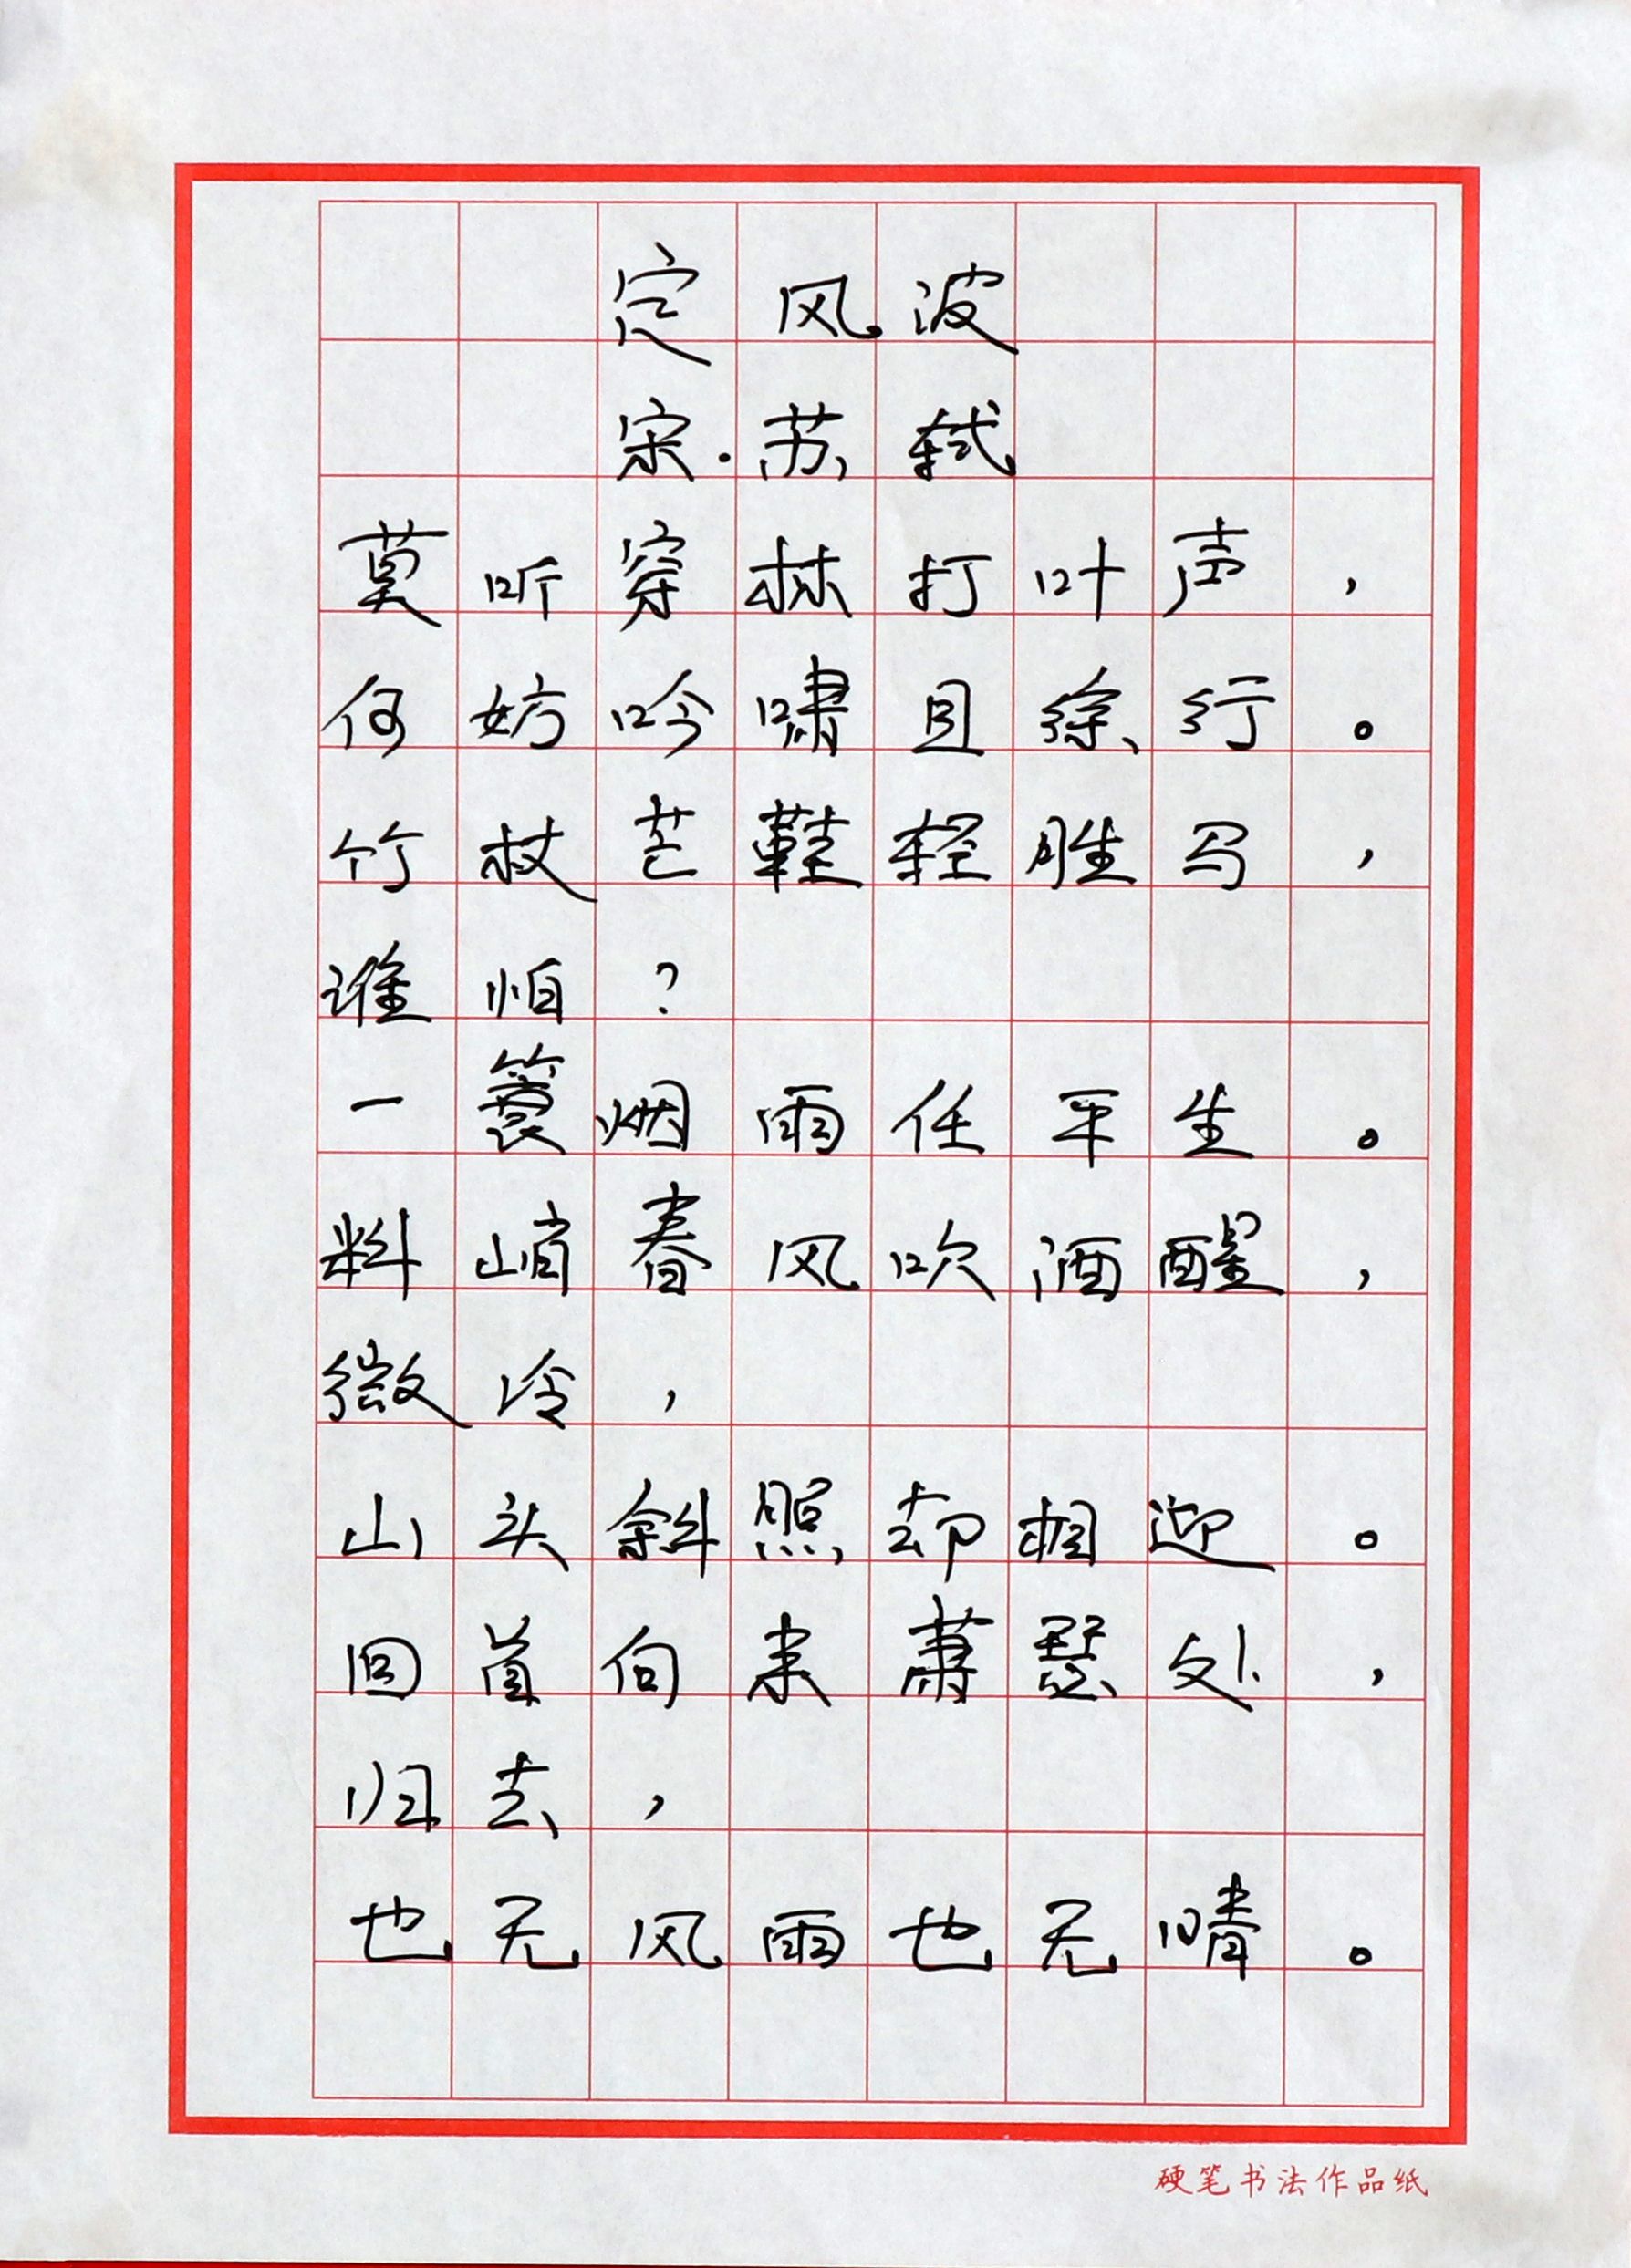 定风波
宋·苏轼
莫听穿林打叶声，
何妨吟啸且徐行。
竹杖芒鞋轻胜马，
谁怕？
一蓑烟雨任平生。
料峭春风吹酒醒，
微冷，
山头斜照却相迎。
回首向来萧瑟处，
归去，
也无风雨也无晴。
硬笔书法作品纸